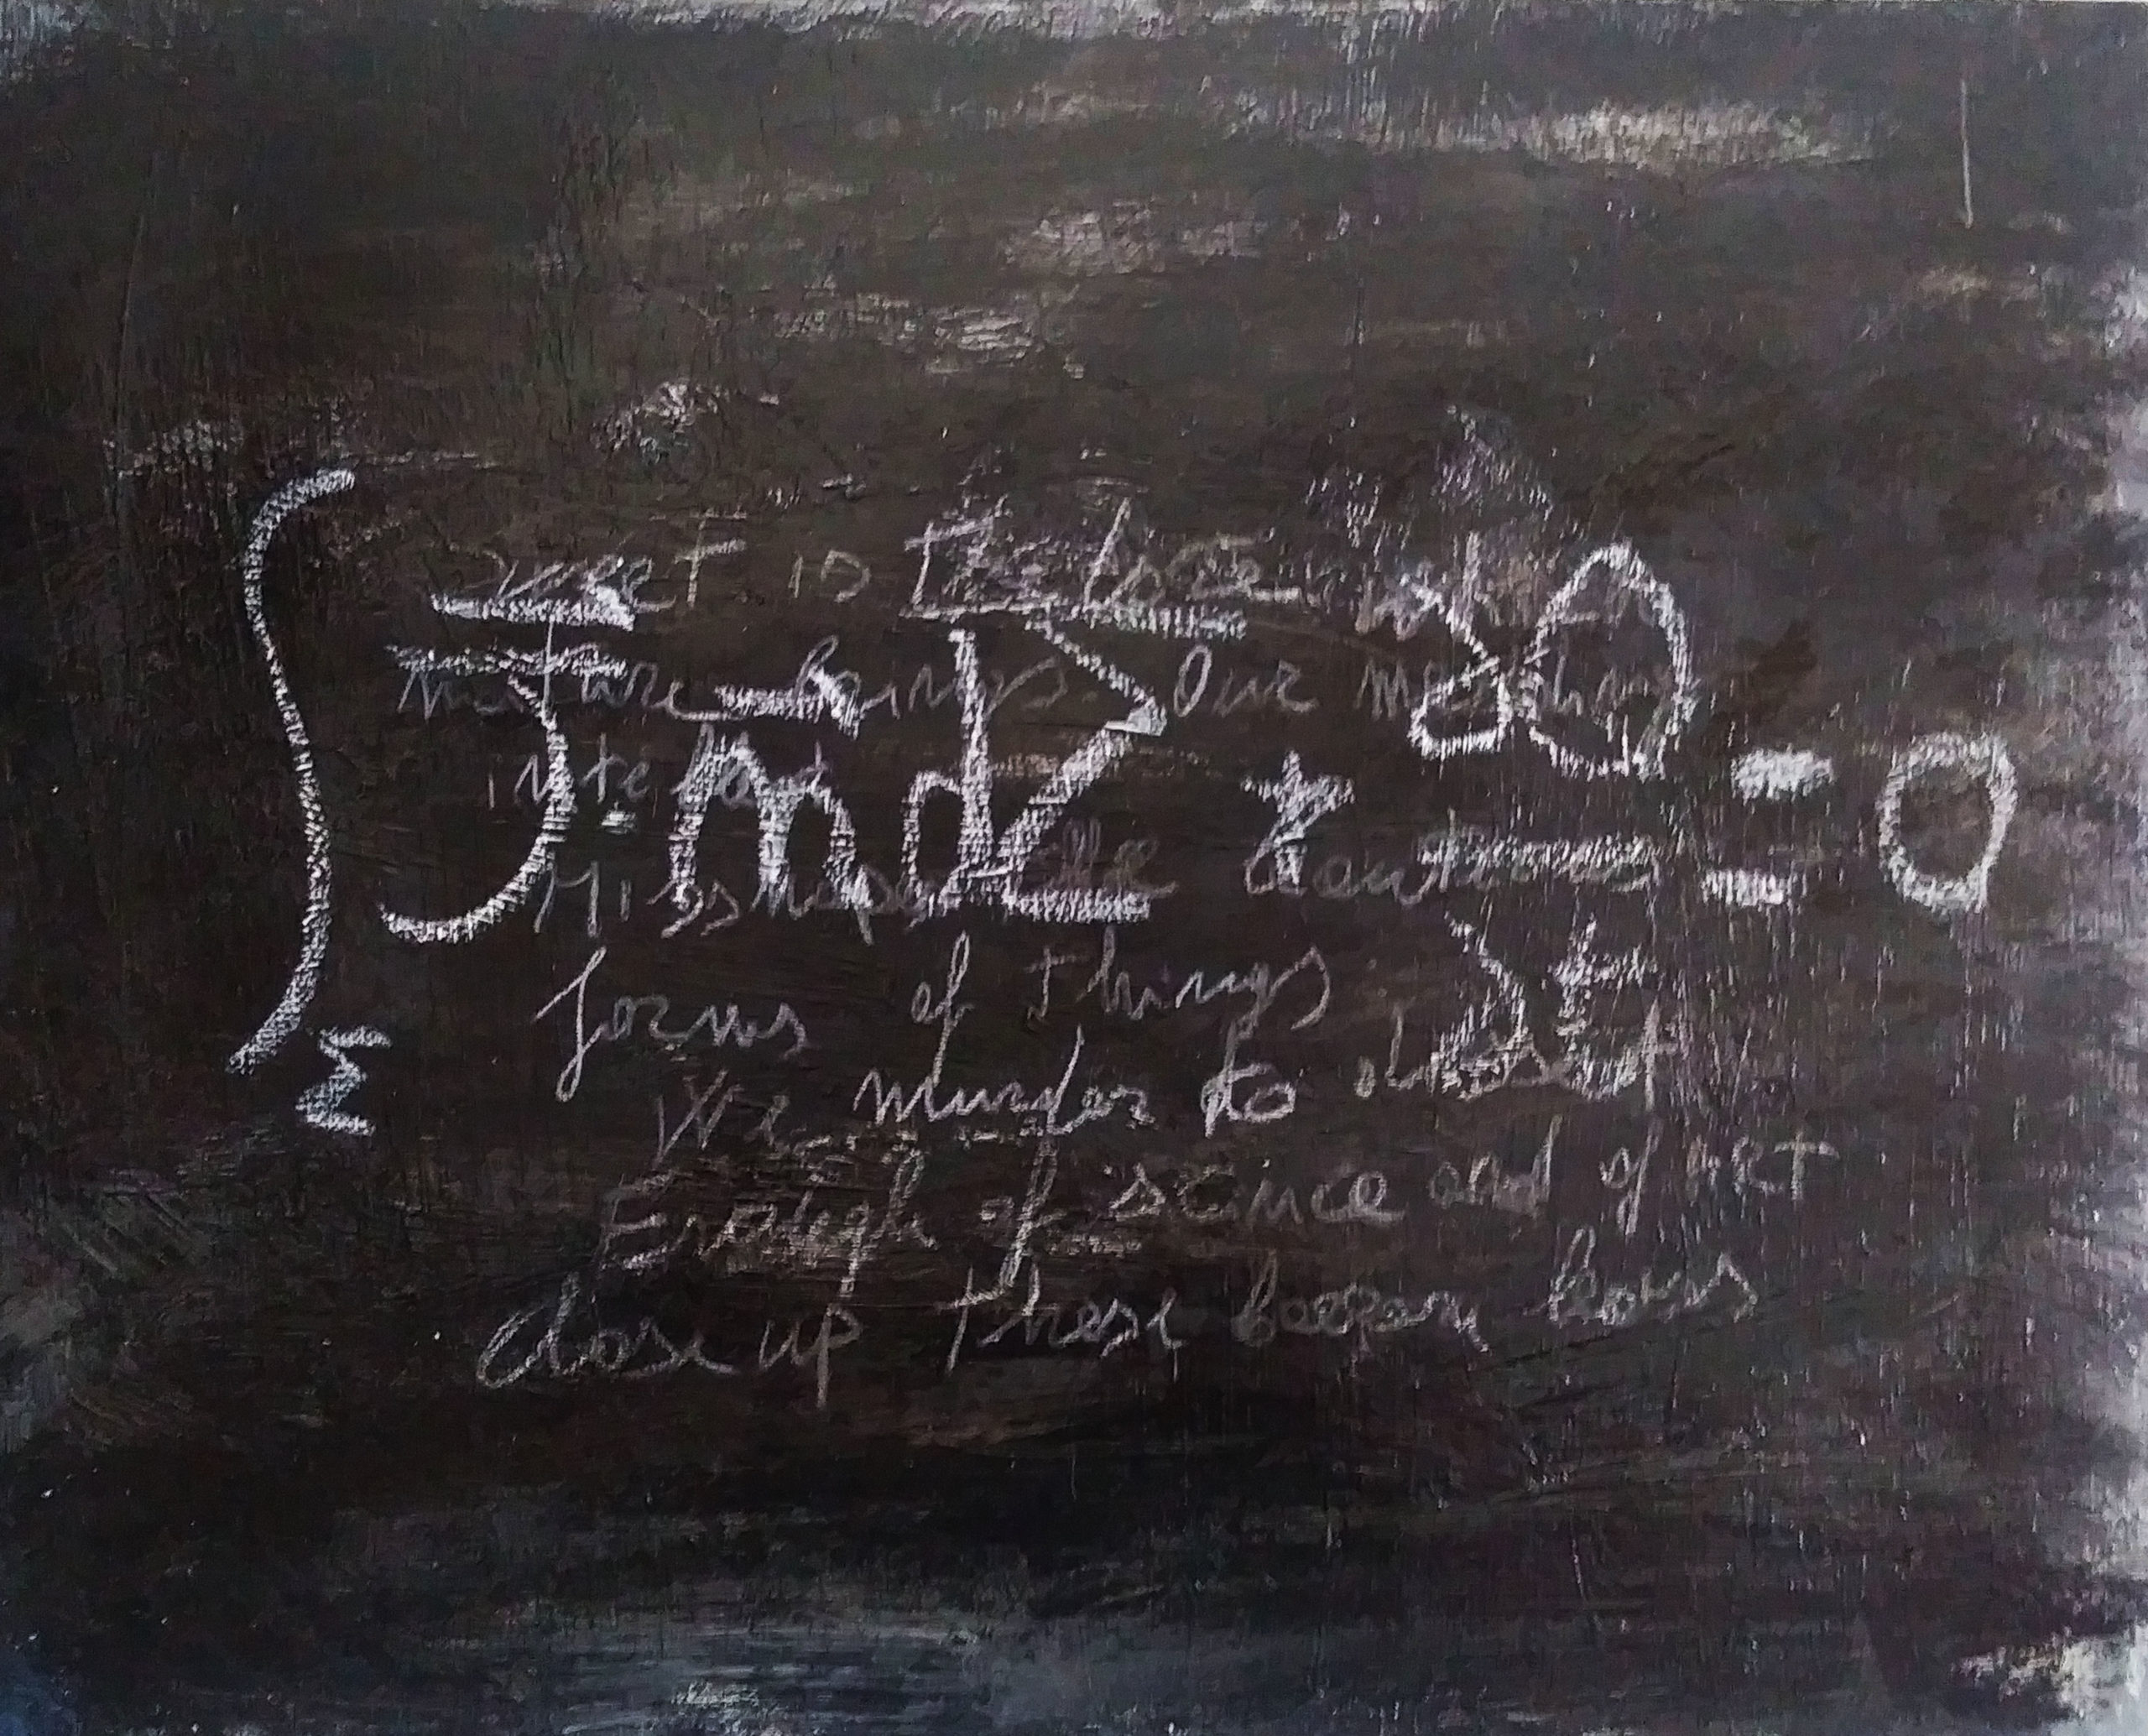 ∫_Σ J⃗ · n⃗ dΣ + ∂Q/∂t = 0
Sweet is the lore which
nature brings. Our meddling
intellect
Misshapes the beauteous
forms of things
We murder to dissect
Enough of science and of ART
close up these barren leaves